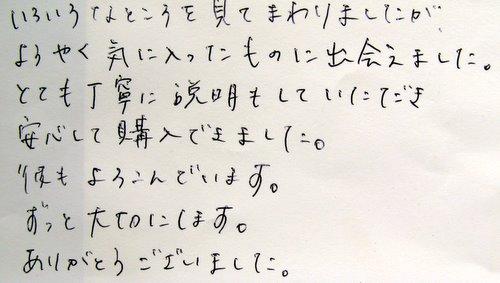 いろいろなところを見てまわりましたが
ようやく気に入ったものに出会えました。
とても丁寧に説明もしていただき
安心して購入できました。
彼もよろこんでいます。
ずっと大切にします。
ありがとうございました。